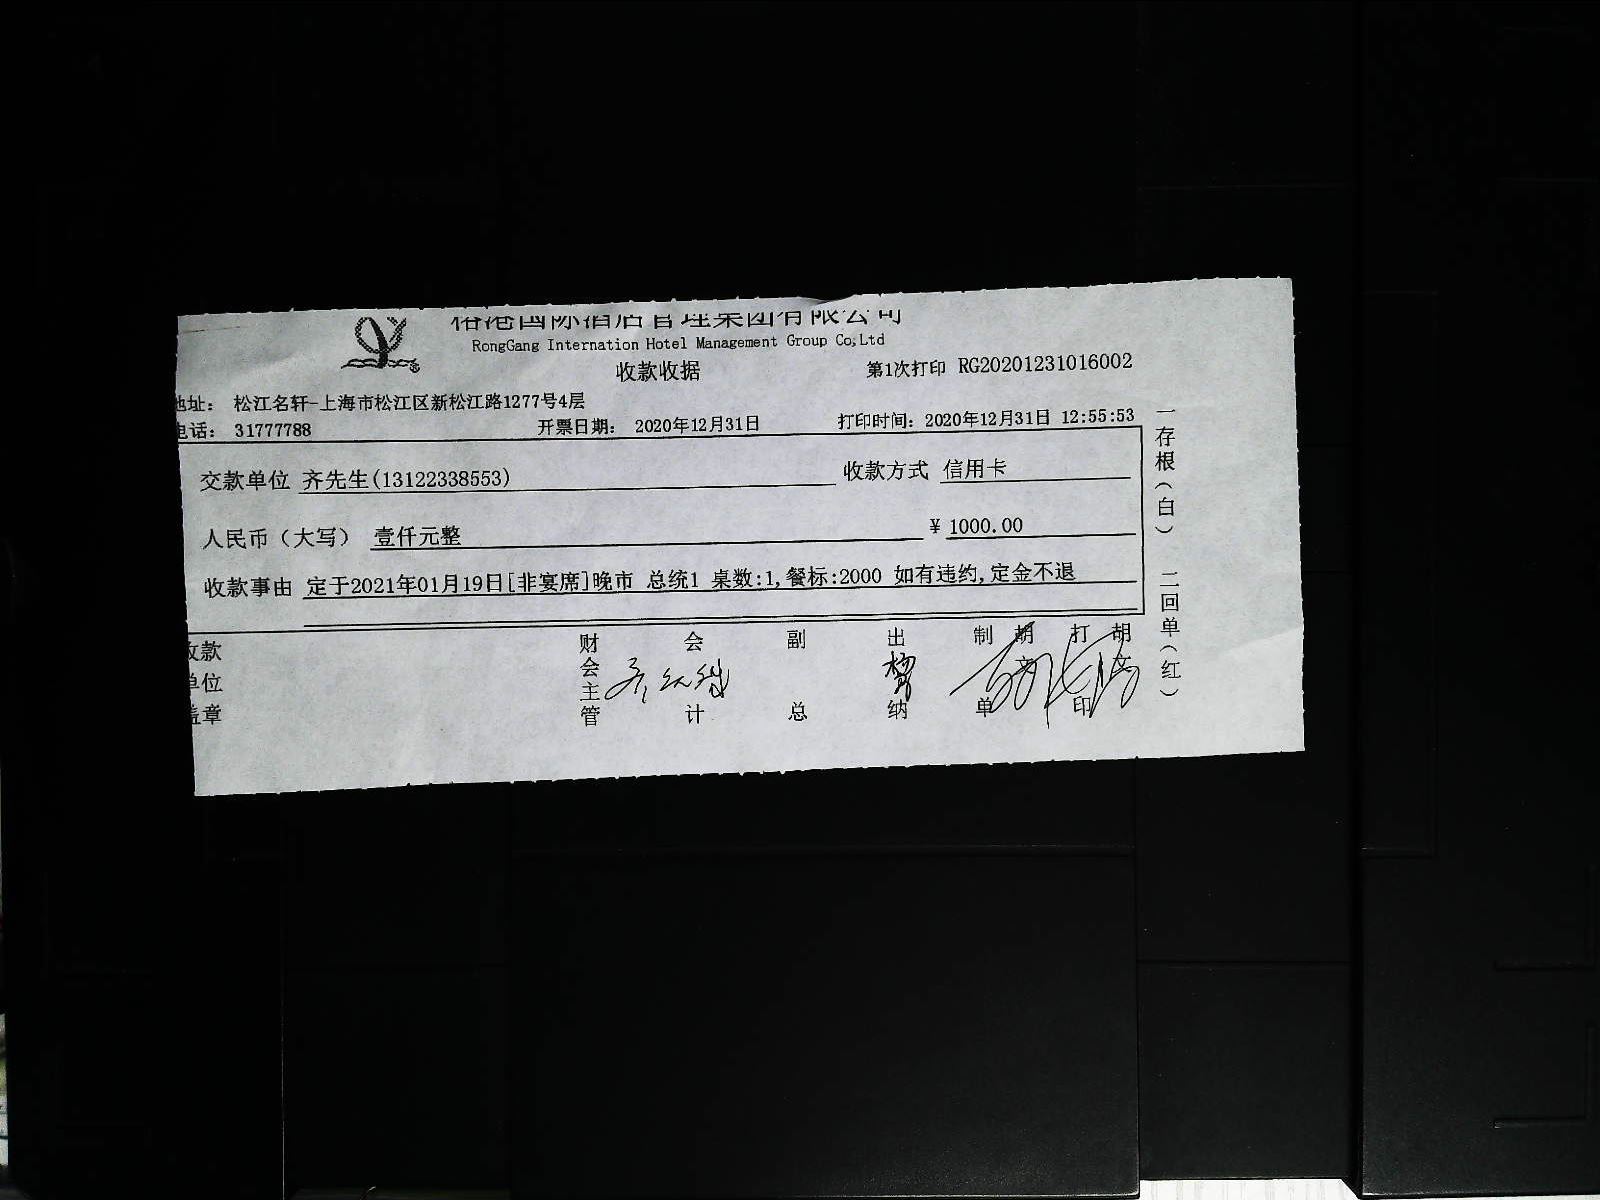 国际酒店管理集团有限公司
RongGang Internation Hotel Management Group Co,Ltd
收款收据
第1次打印 RG20201231016002
地址： 松江名轩-上海市松江区新松江路1277号4层
电话： 31777788
开票日期： 2020年12月31日
打印时间：2020年12月31日 12:55:53
交款单位 齐先生(13122338553)
收款方式 信用卡
人民币（大写） 壹仟元整
¥ 1000.00
收款事由 定于2021年01月19日[非宴席]晚市 总统1 桌数:1,餐标:2000 如有违约,定金不退
收款单位盖章
财会主管
会计
副总
出纳
制单
胡
打印
胡
一存根（白） 二回单（红）